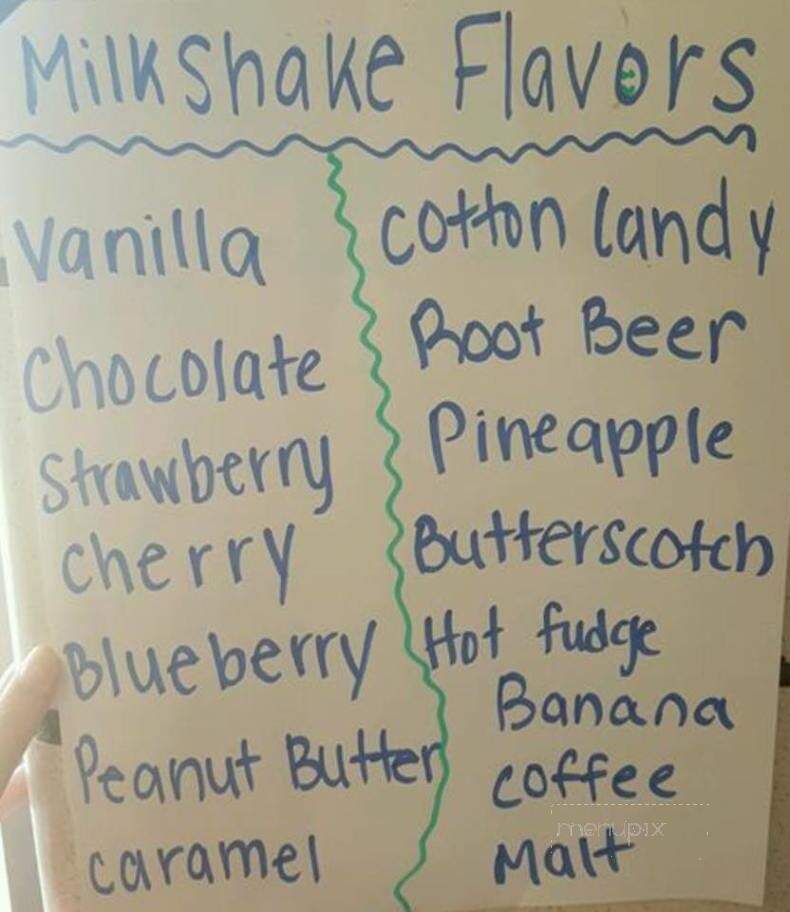 Milkshake Flavors
Vanilla
Chocolate
Strawberry
cherry
Blueberry
Peanut Butter
caramel
cotton Candy
Root Beer
Pineapple
Butterscotch
Hot fudge
Banana
coffee
Malt
menupix